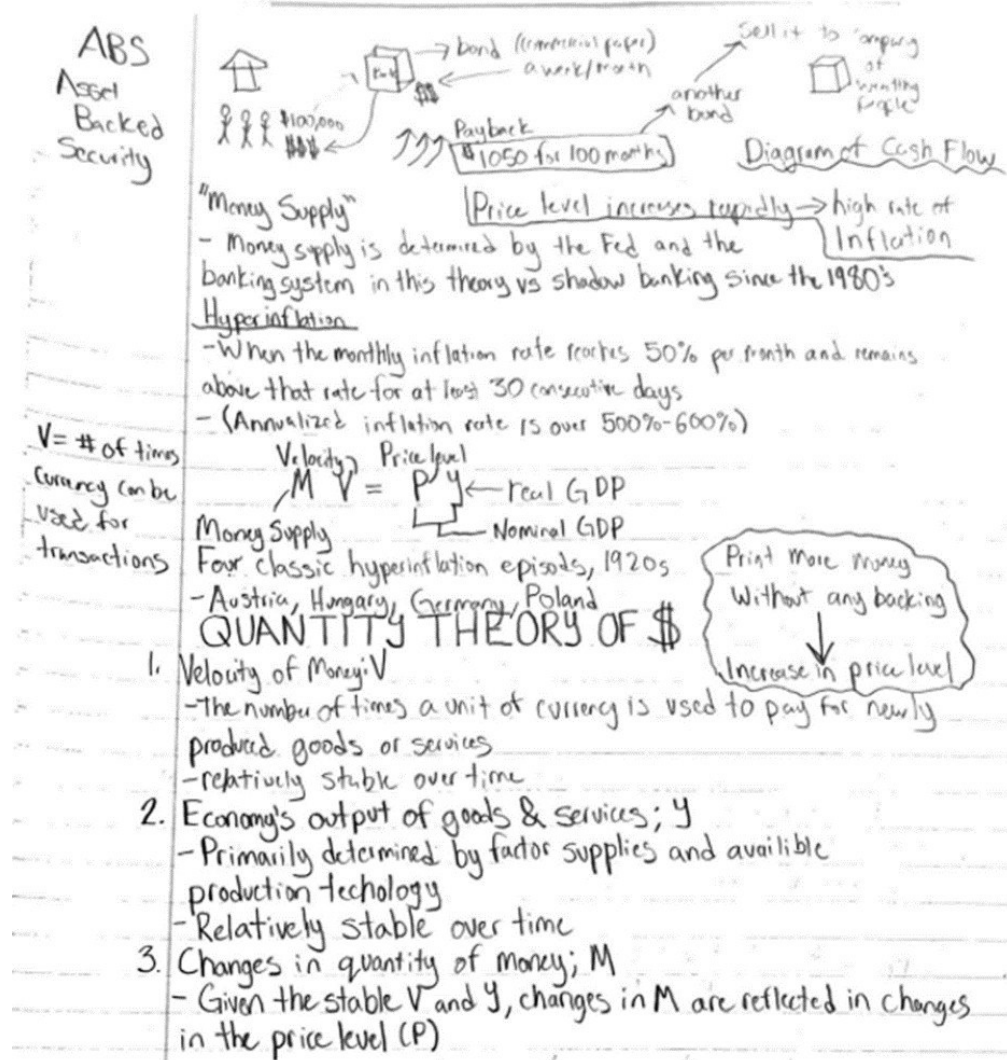 ABS
Asset
Backed
Security
bond (commercial paper)
a week/month
$$
$100,000
$$$
Payback
$1050 for 100 months
another
bond
Sell it to company
of
people
Diagram of Cash Flow
"Money Supply"
Price level increases rapidly → high rate of
Inflation
- Money supply is determined by the Fed and the
banking system in this theory vs shadow banking since the 1980's
Hyperinflation
- When the monthly inflation rate reaches 50% per month and remains
above that rate for at least 30 consecutive days
- (Annualized inflation rate is over 500%-600%)
V= # of times
currency can be
used for
transactions
Velocity Price level
M V = P Y ← real GDP
Nominal GDP
Money Supply
Four classic hyperinflation episods, 1920s
- Austria, Hungary, Germany, Poland
Print more money
Without any backing
↓
Increase in price level
QUANTITY THEORY OF $
1. Velocity of Money; V
- the number of times a unit of currency is used to pay for newly
produced goods or services
- relatively stable over time
2. Economy's output of goods & services; Y
- Primarily determined by factor supplies and availible
production techology
- Relatively stable over time
3. Changes in quantity of money; M
- Given the stable V and Y, changes in M are reflected in changes
in the price level (P)